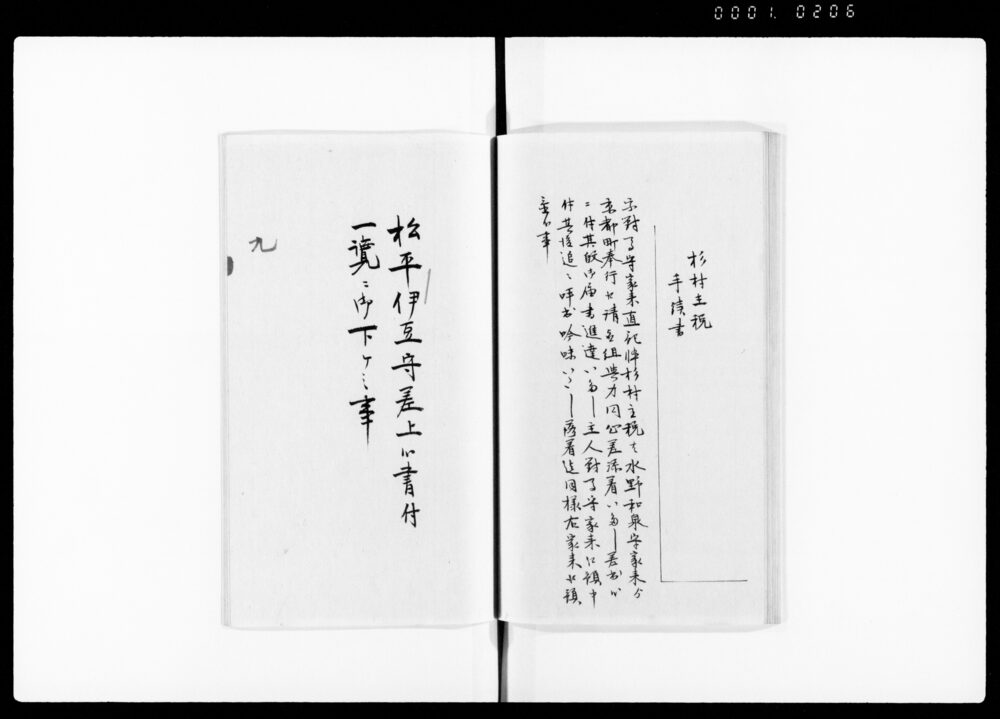 0001. 0206
杉村主税
手續書
宗對馬守家来直記忰杉村主税を水野和泉守家来ゟ
京都町奉行江請取組与力同心差添着いたし差出
ニ付其段御届書進達いたし主人對馬守家来江預申
付其後追々呼出吟味いたし落着迄同様右家来江預
置候事
松平伊豆守差上候書付
一覧ニ御下ケ之事
九